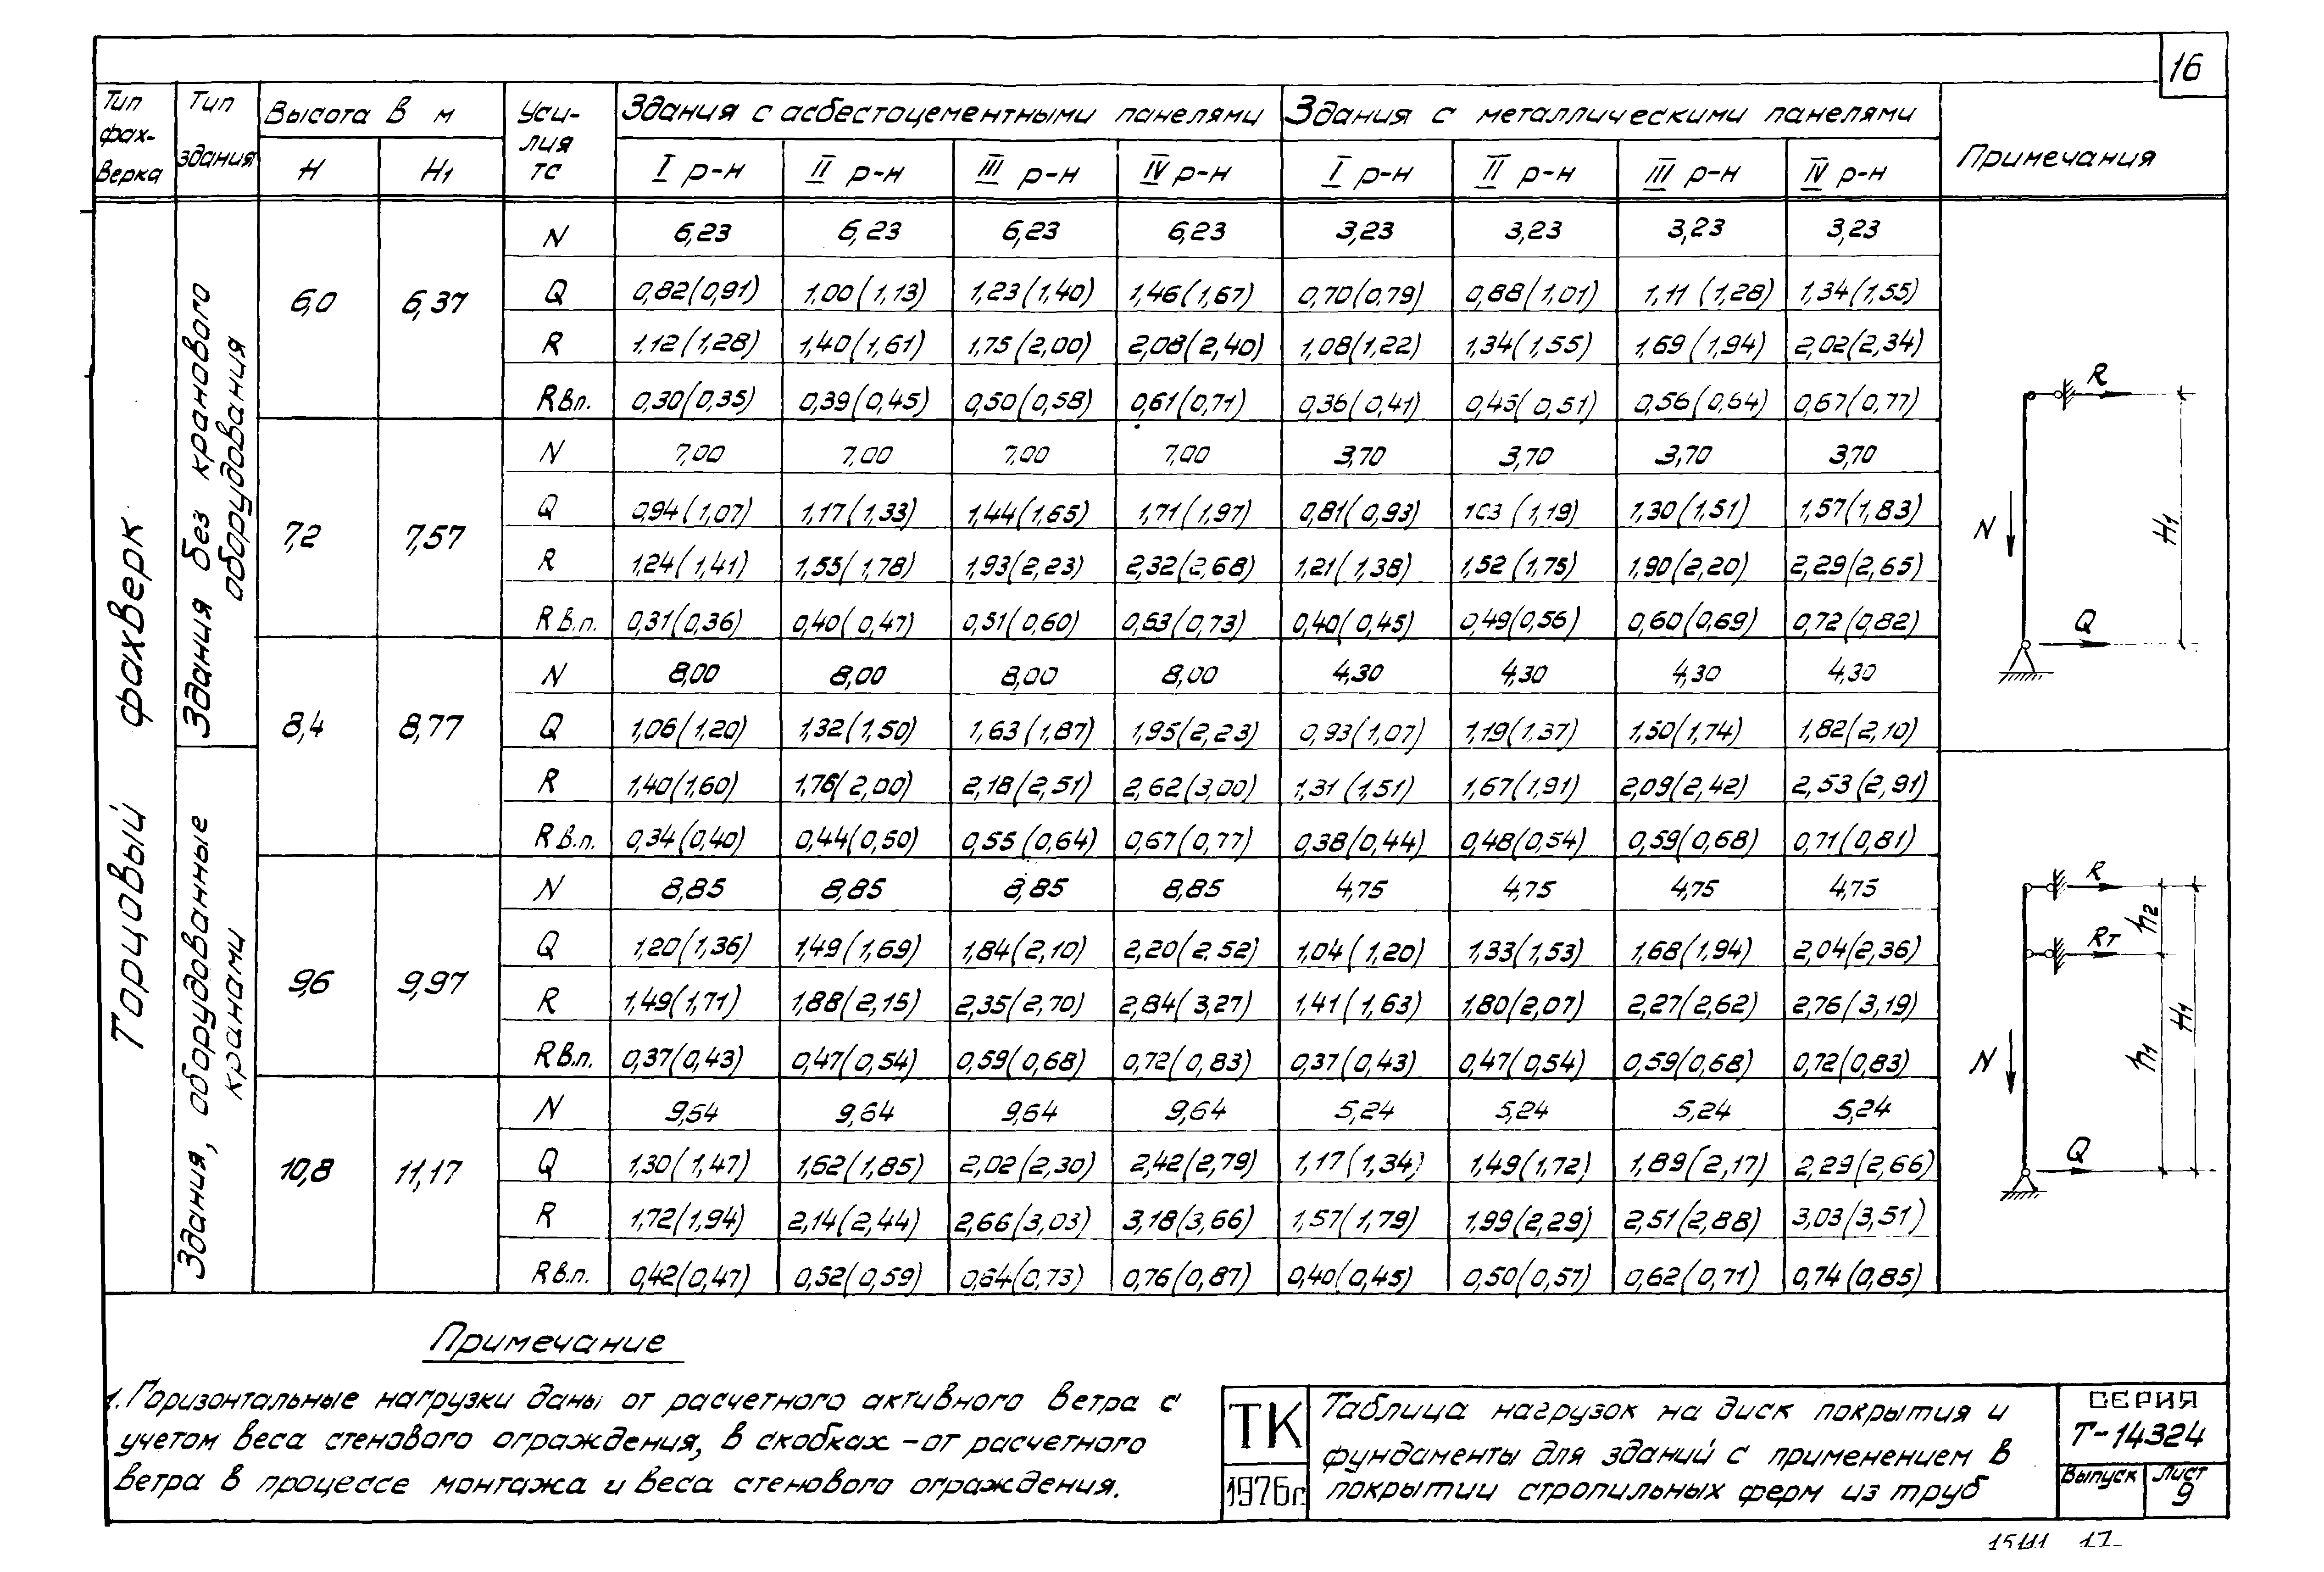 16
Тип фахверка | Тип здания | Высота в м | Усилия тс | Здания с асбестоцементными панелями | Здания с металлическими панелями | Примечания
H | H₁ | I р-н | II р-н | III р-н | IV р-н | I р-н | II р-н | III р-н | IV р-н
Торцовый фахверк
Здания без кранового оборудования
Здания, оборудованные кранами
6,0 | 6,37
N | 6,23 | 6,23 | 6,23 | 6,23 | 3,23 | 3,23 | 3,23 | 3,23
Q | 0,82(0,91) | 1,00(1,13) | 1,23(1,40) | 1,46(1,67) | 0,70(0,79) | 0,88(1,01) | 1,11(1,28) | 1,34(1,55)
R | 1,12(1,28) | 1,40(1,61) | 1,75(2,00) | 2,08(2,40) | 1,08(1,22) | 1,34(1,55) | 1,69(1,94) | 2,02(2,34)
Rв.п. | 0,30(0,35) | 0,39(0,45) | 0,50(0,58) | 0,61(0,71) | 0,36(0,41) | 0,45(0,51) | 0,56(0,64) | 0,67(0,77)
7,2 | 7,57
N | 7,00 | 7,00 | 7,00 | 7,00 | 3,70 | 3,70 | 3,70 | 3,70
Q | 0,94(1,07) | 1,17(1,33) | 1,44(1,65) | 1,71(1,97) | 0,81(0,93) | 1,03(1,19) | 1,30(1,51) | 1,57(1,83)
R | 1,24(1,41) | 1,55(1,78) | 1,93(2,23) | 2,32(2,68) | 1,21(1,38) | 1,52(1,75) | 1,90(2,20) | 2,29(2,65)
Rв.п. | 0,31(0,36) | 0,40(0,47) | 0,51(0,60) | 0,63(0,73) | 0,40(0,45) | 0,49(0,56) | 0,60(0,69) | 0,72(0,82)
8,4 | 8,77
N | 8,00 | 8,00 | 8,00 | 8,00 | 4,30 | 4,30 | 4,30 | 4,30
Q | 1,06(1,20) | 1,32(1,50) | 1,63(1,87) | 1,95(2,23) | 0,93(1,07) | 1,19(1,37) | 1,50(1,74) | 1,82(2,10)
R | 1,40(1,60) | 1,76(2,00) | 2,18(2,51) | 2,62(3,00) | 1,31(1,51) | 1,67(1,91) | 2,09(2,42) | 2,53(2,91)
Rв.п. | 0,34(0,40) | 0,44(0,50) | 0,55(0,64) | 0,67(0,77) | 0,38(0,44) | 0,48(0,54) | 0,59(0,68) | 0,71(0,81)
9,6 | 9,97
N | 8,85 | 8,85 | 8,85 | 8,85 | 4,75 | 4,75 | 4,75 | 4,75
Q | 1,20(1,36) | 1,49(1,69) | 1,84(2,10) | 2,20(2,52) | 1,04(1,20) | 1,33(1,53) | 1,68(1,94) | 2,04(2,36)
R | 1,49(1,71) | 1,88(2,15) | 2,35(2,70) | 2,84(3,27) | 1,41(1,63) | 1,80(2,07) | 2,27(2,62) | 2,76(3,19)
Rв.п. | 0,37(0,43) | 0,47(0,54) | 0,59(0,68) | 0,72(0,83) | 0,37(0,43) | 0,47(0,54) | 0,59(0,68) | 0,72(0,83)
10,8 | 11,17
N | 9,64 | 9,64 | 9,64 | 9,64 | 5,24 | 5,24 | 5,24 | 5,24
Q | 1,30(1,47) | 1,62(1,85) | 2,02(2,30) | 2,42(2,79) | 1,17(1,34) | 1,49(1,72) | 1,89(2,17) | 2,29(2,66)
R | 1,72(1,94) | 2,14(2,44) | 2,66(3,03) | 3,18(3,66) | 1,57(1,79) | 1,99(2,29) | 2,51(2,88) | 3,03(3,51)
Rв.п. | 0,42(0,47) | 0,52(0,59) | 0,64(0,73) | 0,76(0,87) | 0,40(0,45) | 0,50(0,57) | 0,62(0,71) | 0,74(0,85)
R
N
H₁
Q
R
Rт
h₂
N
h₁
H₁
Q
Примечание
1. Горизонтальные нагрузки даны от расчетного активного ветра с
учетом веса стенового ограждения, в скобках – от расчетного
ветра в процессе монтажа и веса стенового ограждения.
ТК
1976г.
Таблица нагрузок на диск покрытия и
фундаменты для зданий с применением в
покрытии стропильных ферм из труб
СЕРИЯ
Т-14324
Выпуск
Лист
9
15111 17